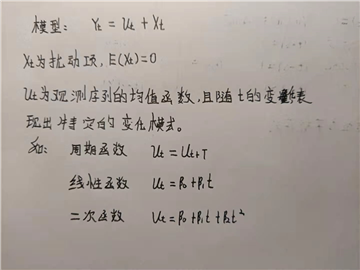 模型: Yt = Ut + Xt
Xt为扰动项, E(Xt)=0
Ut为观测序列的均值函数, 且随t的变化表
现出特定的变化模式。
如: 周期函数 Ut = Ut+T
线性函数 Ut = β0 + β1t
二次函数 Ut = β0 + β1t + β2t²